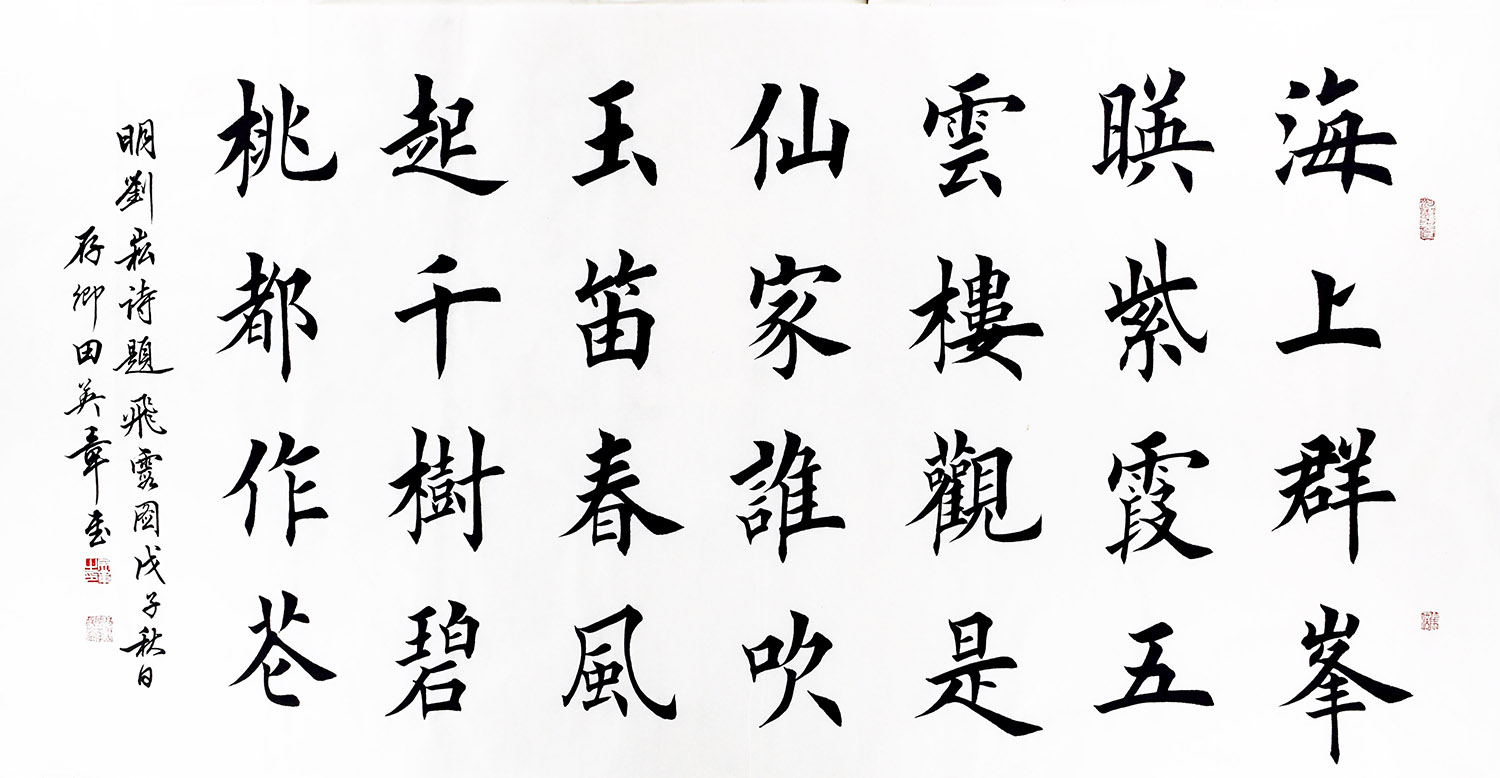 海上群峯
暎紫霞五
雲樓觀是
仙家誰吹
玉笛春風
起千樹碧
桃都作花
明劉崧詩題飛霞圖戊子秋日
存卿田英章書